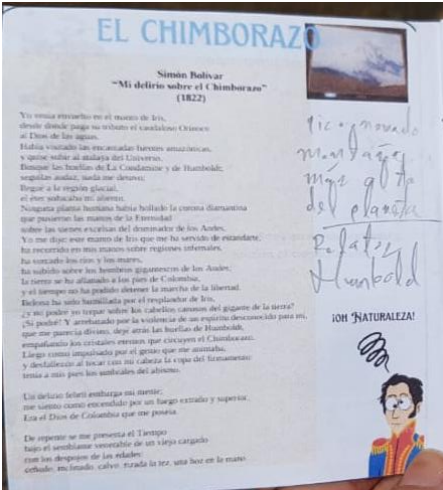 EL CHIMBORAZO
Simón Bolívar
"Mi delirio sobre el Chimborazo"
(1822)
Yo venía envuelto en el manto de Iris,
desde donde paga su tributo el caudaloso Orinoco
al Dios de las aguas.
Había visitado las encantadas fuentes amazónicas,
y quise subir al atalaya del Universo.
Busqué las huellas de La Condamine y de Humboldt;
seguílas audaz, nada me detuvo;
llegué a la región glacial,
el éter sofocaba mi aliento.
Ninguna planta humana había hollado la corona diamantina
que pusieron las manos de la Eternidad
sobre las sienes excelsas del dominador de los Andes.
Yo me dije: este manto de Iris que me ha servido de estandarte,
ha recorrido en mis manos sobre regiones infernales,
ha surcado los ríos y los mares,
ha subido sobre los hombros gigantescos de los Andes;
la tierra se ha allanado a los pies de Colombia,
y el tiempo no ha podido detener la marcha de la libertad.
Belona ha sido humillada por el resplandor de Iris,
¿y no podré yo trepar sobre los cabellos canosos del gigante de la tierra?
¡Sí podré! Y arrebatado por la violencia de un espíritu desconocido para mí,
que me parecía divino, dejé atrás las huellas de Humboldt,
empañando los cristales eternos que circuyen el Chimborazo.
Llego como impulsado por el genio que me animaba,
y desfallezco al tocar con mi cabeza la copa del firmamento:
tenía a mis pies los umbrales del abismo.
Un delirio febril embarga mi mente;
me siento como encendido por un fuego extraño y superior.
Era el Dios de Colombia que me poseía.
De repente se me presenta el Tiempo
bajo el semblante venerable de un viejo cargado
con los despojos de las edades:
ceñudo, inclinado, calvo, rizada la tez, una hoz en la mano.
pico nevado
montaña
más alta
del planeta
Relatos
Humbold
¡OH NATURALEZA!